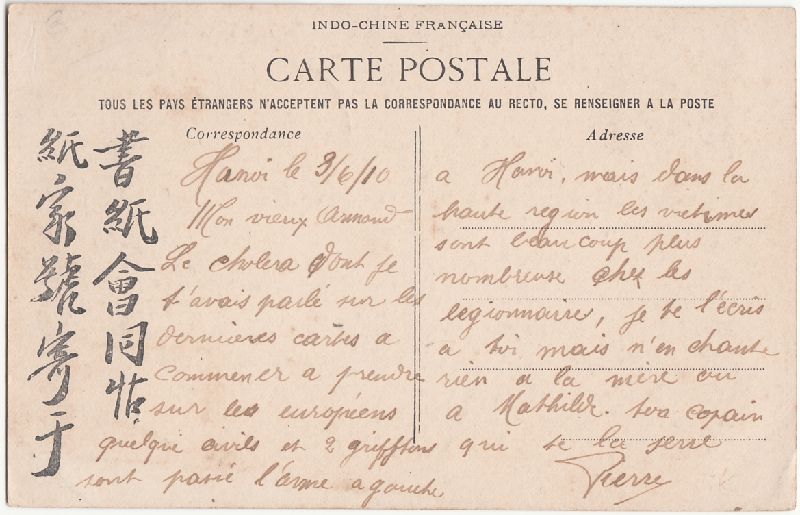 INDO-CHINE FRANÇAISE
CARTE POSTALE
TOUS LES PAYS ÉTRANGERS N'ACCEPTENT PAS LA CORRESPONDANCE AU RECTO, SE RENSEIGNER A LA POSTE
Correspondance
Hanoi le 3/6/10
Mon vieux Armand
Le cholera dont je
t'avais parlé sur les
dernieres cartes a
commencer a prendre
sur les européens
quelque civils et 2 griffton
sont passé l'arme a gauche
Adresse
a Hanoi, mais dans la
haute region les victimes
sont beaucoup plus
nombreuse chez les
legionnaire, je te l'écris
a toi mais n'en chante
rien a la mère ou
a Mathilde. ton copain
qui te la serre
Pierre
書紙會同
紙家號寄于